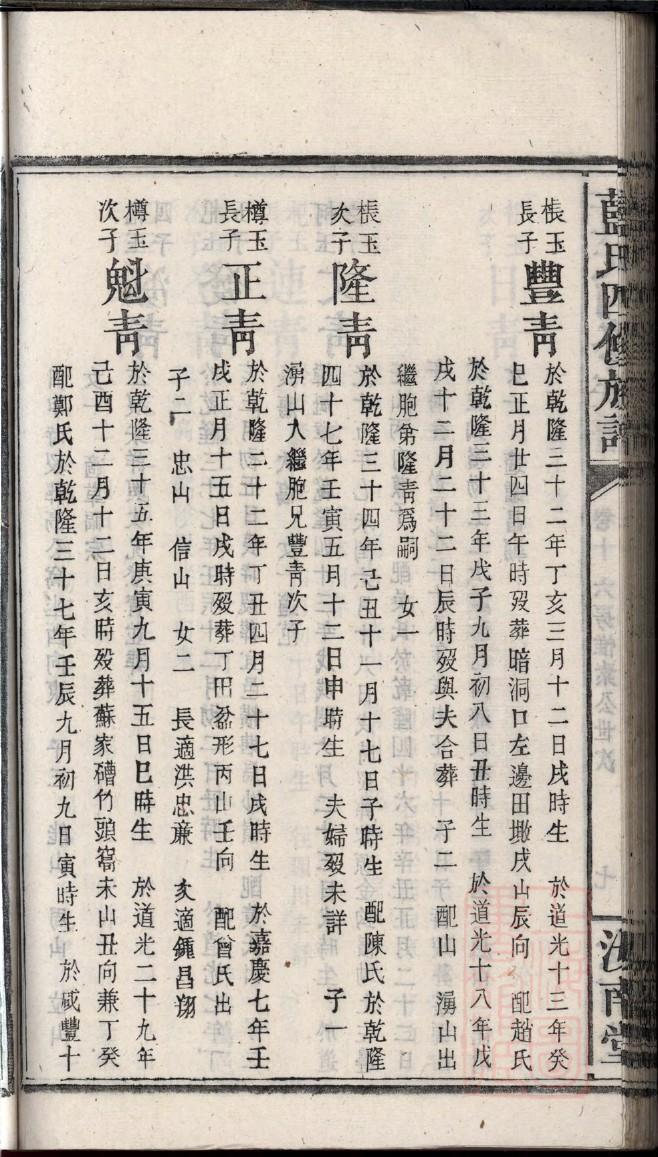 藍氏四修族譜
卷十六易惟素公世次
七
汝南堂
棖玉
長子
豐青
於乾隆三十二年丁亥三月十二日戌時生 於道光十三年癸
巳正月廿四日午時歿葬暗洞口左邊田墩戌山辰向 配趙氏
於乾隆三十三年戊子九月初八日丑時生 於道光十八年戊
戌十二月二十二日辰時歿與夫合葬 子二 配山 湧山出
繼胞弟隆青爲嗣 女一
棖玉
次子
隆青
於乾隆三十四年己丑十一月十七日子時生 配陳氏於乾隆
四十七年壬寅五月十二日申時生 夫婦歿未詳 子一
湧山入繼胞兄豐青次子
樽玉
長子
正青
於乾隆二十二年丁丑四月二十七日戌時生 於嘉慶七年壬
戌正月十五日戌時歿葬丁田盆形丙山壬向 配曾氏出
子二 忠山 信山 女二 長適洪忠亷 次適鍾昌翔
樽玉
次子
魁青
於乾隆三十五年庚寅九月十五日巳時生 於道光二十九年
己酉十二月十二日亥時歿葬蘇家磳竹頭窩未山丑向兼丁癸
配鄭氏於乾隆三十七年壬辰九月初九日寅時生 於咸豐十